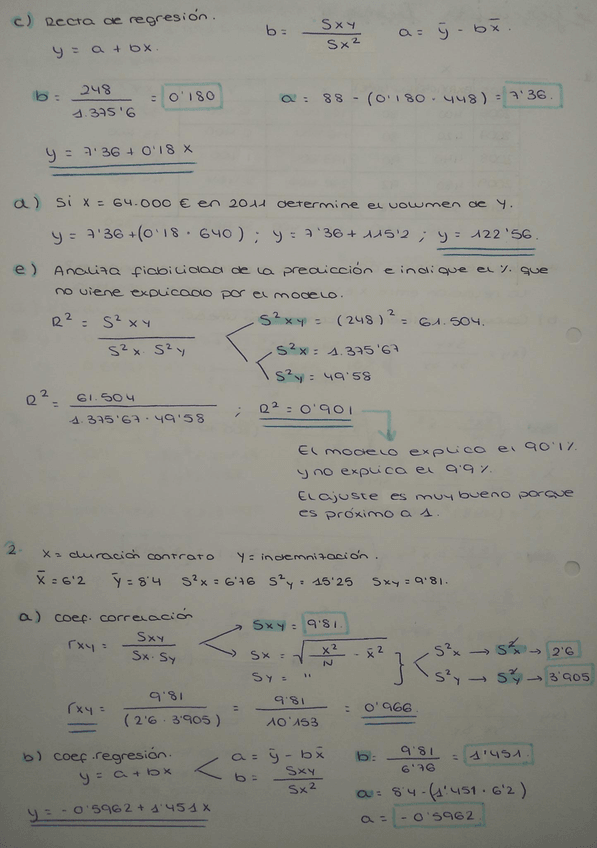 c) Recta de regresión.
y = a + bx.
b = Sxy / Sx²
a = ȳ - bx̄.
b = 248 / 1.375'6 = 0'180
a = 88 - (0'180 · 448) = 7'36.
y = 7'36 + 0'18 x
d) Si x = 64.000 € en 2011 determine el volumen de Y.
y = 7'36+(0'18 · 640) ; y = 7'36 + 115'2 ; y = 122'56.
e) Analiza fiabilidad de la predicción e indique el % que
no viene explicado por el modelo.
R² = S²xy / S²x · S²y
S²xy = (248)² = 61.504.
S²x = 1.375'67
S²y = 49'58
R² = 61.504 / 1.375'67 · 49'58 ; R² = 0'901
El modelo explica el 90'1%
y no explica el 9'9%.
El ajuste es muy bueno porque
es próximo a 1.
2. X = duración contrato Y = indemnización.
x̄ = 6'2 ȳ = 8'4 S²x = 6'76 S²y = 15'25 Sxy = 9'81.
a) coef. correlación
rxy = Sxy / Sx · Sy
Sxy = 9'81.
Sx = √ x² / N - x̄²
Sy = "
S²x → S²x → 2'6
S²y → S²y → 3'905
rxy = 9'81 / (2'6 · 3'905) = 9'81 / 10'153 = 0'966.
b) coef. regresión.
y = a + bx
a = ȳ - bx̄
b = Sxy / Sx²
b = 9'81 / 6'76 = 1'451.
a = 8'4 - (1'451 · 6'2)
a = - 0'5962
y = - 0'5962 + 1'451 x